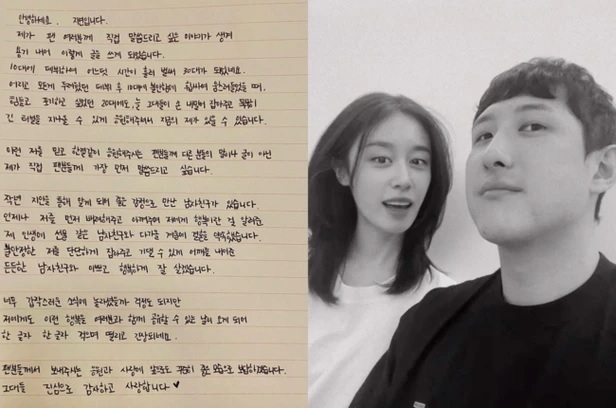 안녕하세요. 지연입니다.
제가 팬 여러분께 직접 말씀드리고 싶은 이야기가 생겨
용기 내어 이렇게 글을 쓰게 되었습니다.
10대에 데뷔하여 어느덧 시간이 흘러 벌써 30대가 되었네요.
어리고 모든게 두려웠던 데뷔 후 10대에 불안하고
힘들고 포기하고 싶었던 20대에도, 늘 그대들이 손 내밀어 잡아주고 묵묵히
긴 터널을 지나올 수 있게 응원해주셔서 지금의 제가 있을 수 있습니다.
이런 저를 믿고 한결같이 응원해주시는 팬분들께 다른 분들의 말이나 글이 아닌
제가 직접 팬분들께 가장 먼저 말씀드리고 싶습니다.
작년 지인을 통해 알게 되어 좋은 감정으로 만난 남자친구가 있습니다.
언제나 저를 먼저 배려해주고 아껴주며 저에게 행복이란 걸 알려준
제 인생에 선물 같은 남자친구와 다가올 겨울에 결혼을 약속했습니다.
불안정한 저를 단단하게 잡아주고 기댈 수 있게 어깨를 내어준
든든한 남자친구와 예쁘고 행복하게 잘 살겠습니다.
너무 갑작스러운 소식에 놀라셨을까 걱정도 되지만
저에게도 이런 행복을 여러분과 함께 공유할 수 있는 날이 오게 되어
한 글자 한 글자 적으며 떨리고 긴장되네요.
팬분들께서 보내주시는 응원과 사랑에 앞으로도 꾸준히 좋은 모습으로 보답하겠습니다.
그대들 진심으로 감사하고 사랑합니다♥